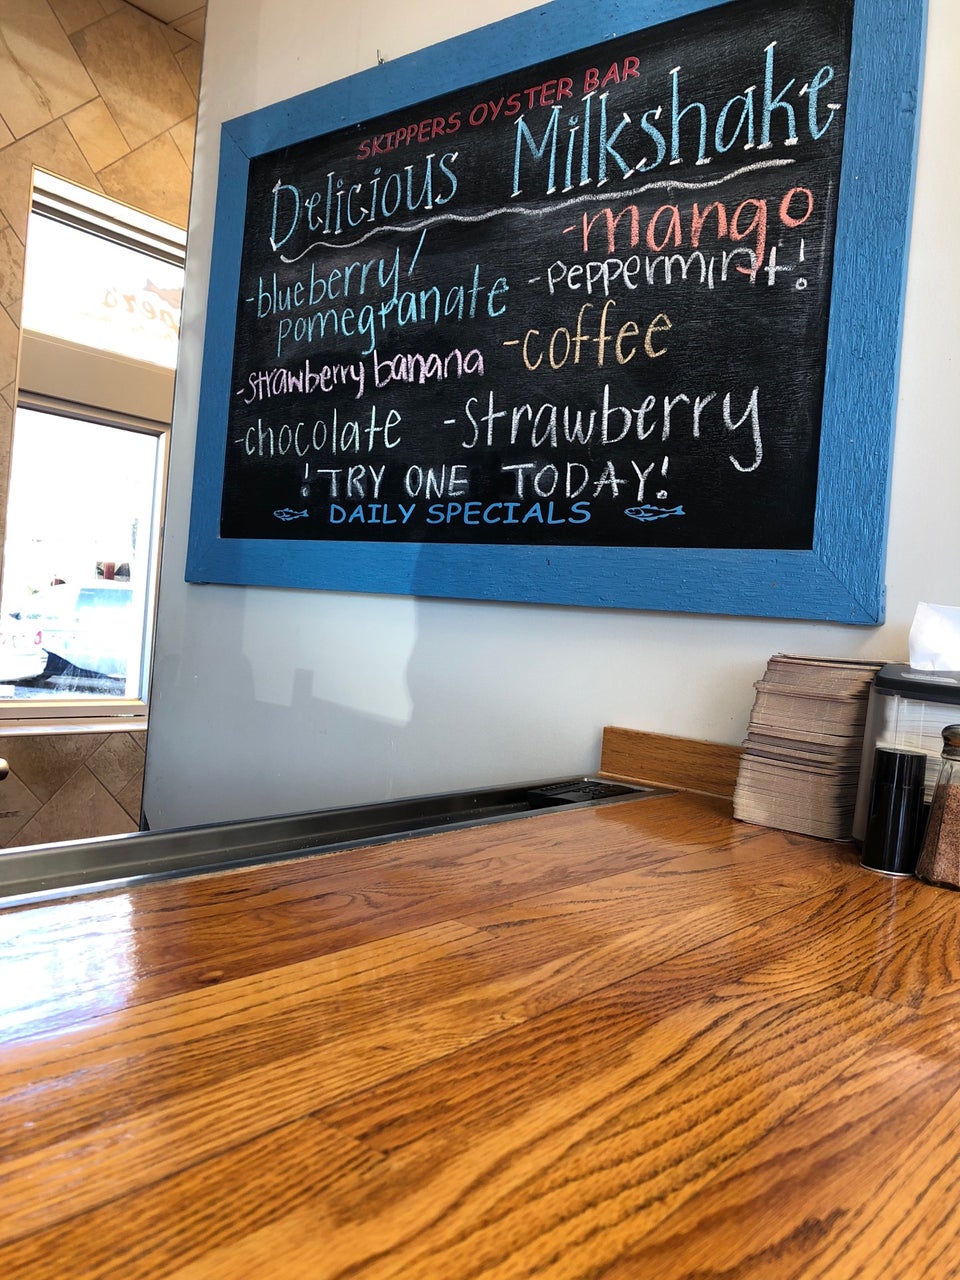 SKIPPERS OYSTER BAR
Delicious Milkshake
-blueberry/
pomegranate
-strawberry banana
-chocolate
-mango
-peppermint!
-coffee
-Strawberry
!TRY ONE TODAY!
DAILY SPECIALS